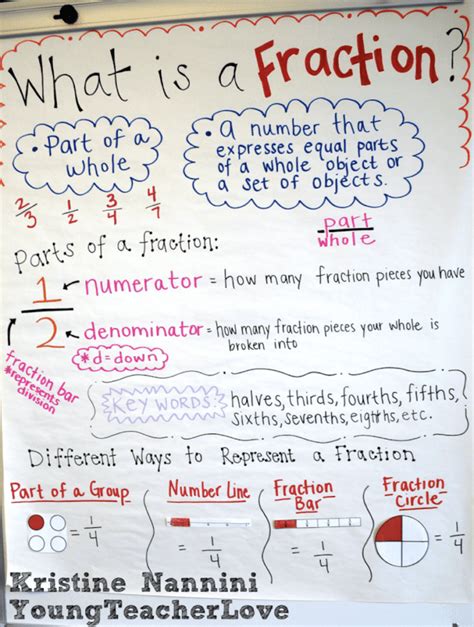 What is a Fraction?
• Part of a
whole
• A number that
expresses equal parts
of a whole object or
a set of objects.
2/3 1/2 3/4 4/7
part
whole
Parts of a fraction:
1 numerator = how many fraction pieces you have
2 denominator = how many fraction pieces your whole is
broken into
*d=down
fraction bar
*represents
division
KEY WORDS
halves, thirds, fourths, fifths,
sixths, sevenths, eigths, etc.
Different Ways to Represent a Fraction
Part of a Group
Number Line
Fraction
Bar
Fraction
Circle
= 1/4
= 1/4
= 1/4
= 1/4
Kristine Nannini
YoungTeacherLove